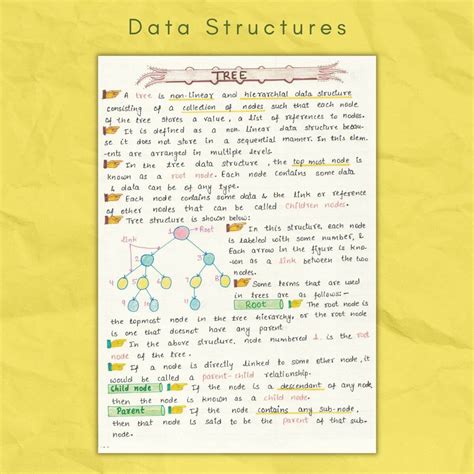 Data Structures
TREE
A tree is non-linear and hierarchial data structure
consisting of a collection of nodes such that each node
of the tree stores a value, a list of references to nodes.
It is defined as a non linear data structure because
it does not store in a sequential manner. In this elem-
ents are arranged in multiple levels.
In the tree data structure, the top most node is
known as a root node. Each node contains some data
& data can be of any type.
Each node contains some data & the link or reference
of other nodes that can be called children nodes.
Tree structure is shown below:
1 Root
Link
2
3
In this structure, each node
is labeled with some number, &
Each arrow in the figure is kno-
wn as a link between the two
nodes.
Some terms that are used
in trees are as follows:-
Root The root node is
the topmost node in the tree hierarchy, or the root node
is one that doesnot have any parent.
In the above structure, node numbered 1. is the root
node of the tree.
If a node is directly linked to some other node, it
would be called a parent-child relationship.
Child node If the node is a descendant of any node
then the node is known as a child node.
Parent If the node contains any sub-node,
then that node is said to be the parent of that sub-
node.